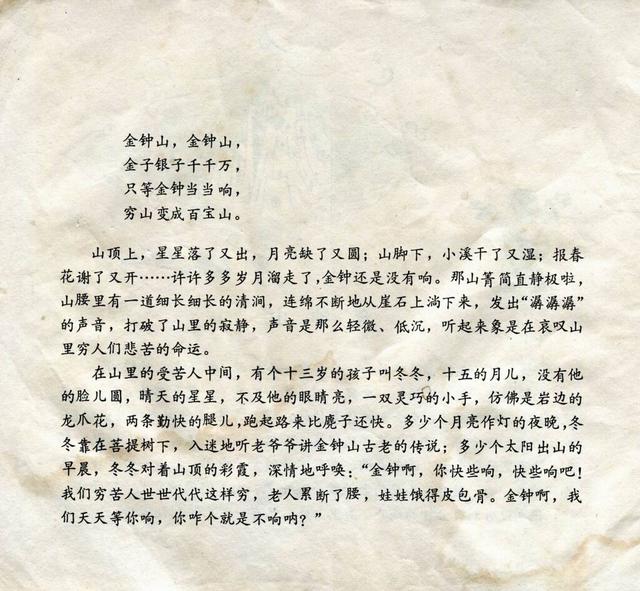 金钟山，金钟山，
金子银子千千万，
只等金钟当当响，
穷山变成百宝山。
山顶上，星星落了又出，月亮缺了又圆；山脚下，小溪干了又湿；报春
花谢了又开……许许多多岁月溜走了，金钟还是没有响。那山菁简直静极啦，
山腰里有一道细长细长的清涧，连绵不断地从崖石上淌下来，发出“潺潺潺”
的声音，打破了山里的寂静，声音是那么轻微、低沉，听起来象是在哀叹山
里穷人们悲苦的命运。
在山里的受苦人中间，有个十三岁的孩子叫冬冬，十五的月儿，没有他
的脸儿圆，晴天的星星，不及他的眼睛亮，一双灵巧的小手，仿佛是岩边的
龙爪花，两条勤快的腿儿，跑起路来比麂子还快。多少个月亮作灯的夜晚，冬
冬靠在菩提树下，入迷地听老爷爷讲金钟山古老的传说；多少个太阳出山的
早晨，冬冬对着山顶的彩霞，深情地呼唤：“金钟啊，你快些响，快些响吧！
我们穷苦人世世代代这样穷，老人累断了腰，娃娃饿得皮包骨。金钟啊，我
们天天等你响，你咋个就是不响呐？”